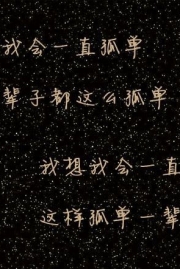 我会一直孤单
辈子都这么孤单
我想我会一直
这样孤单一辈